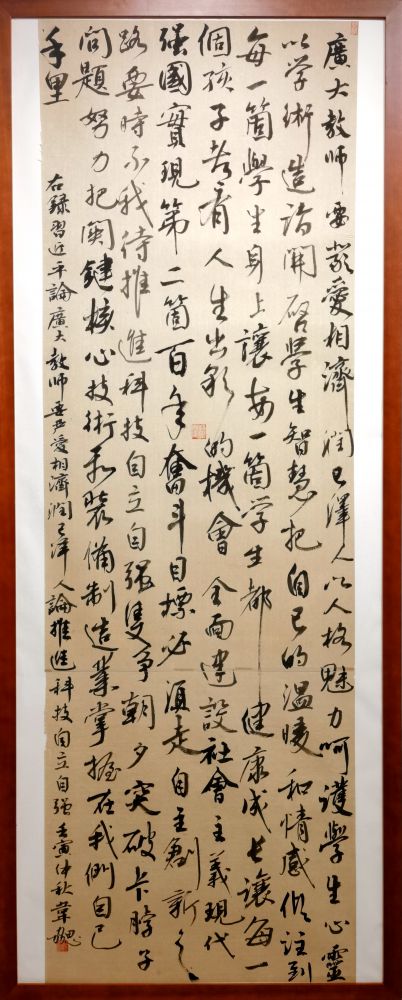 廣大教師要嚴愛相濟潤己澤人以人格魅力呵護學生心靈
以学術造詣開啓學生智慧把自己的溫暖和情感傾注到
每一箇學生身上讓每一箇学生都健康成長讓每一
個孩子都有人生出彩的機會全面建設社會主義現代
强國實現第二箇百年奮斗目標必須走自主創新之
路要時不我待推進科技自立自强隻争朝夕突破卡脖子
問題努力把関鍵核心技術和裝備制造業掌握在我們自己
手里
右録習近平論廣大教師要嚴愛相濟潤己澤人論推進科技自立自强壬寅仲秋韋